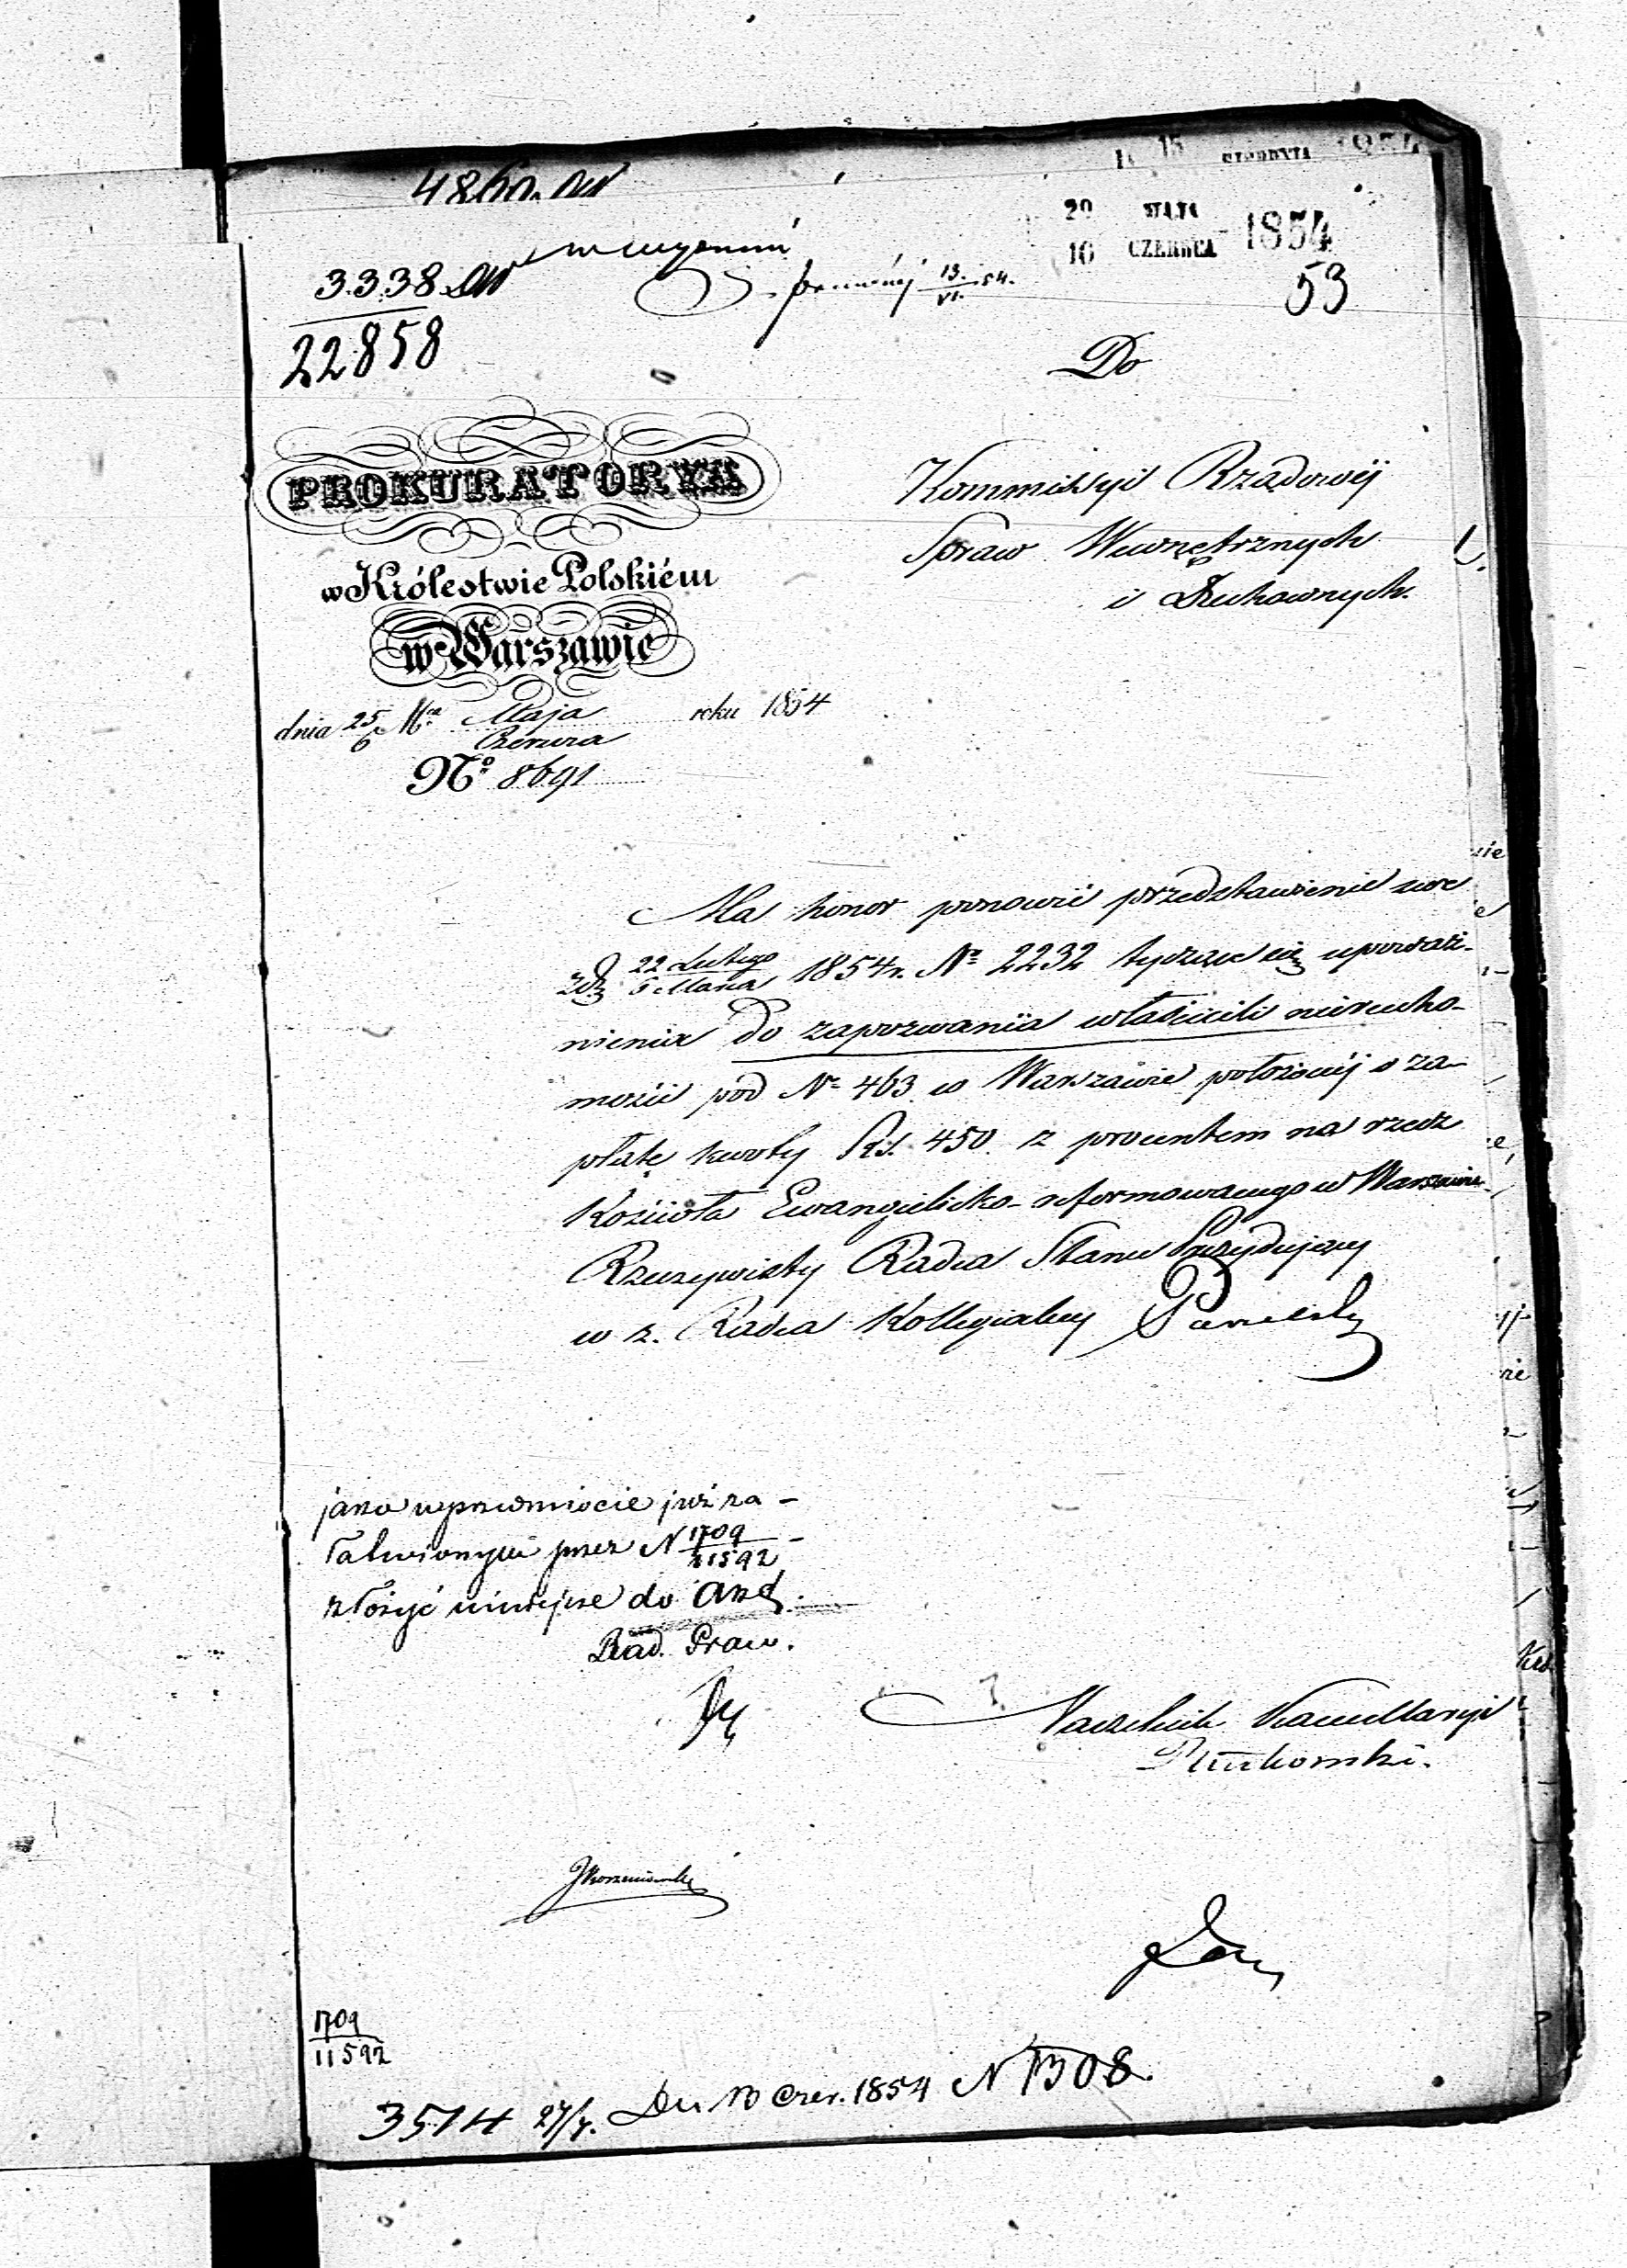 15 SIERPNIA 1854
29 MAJA
10 CZERWCA 1854
53
3338
22858
13./VI. 54.
Do
PROKURATORYA
w Królestwie Polskiém
w Warszawie
dnia 25/6 Mca Maja/Czerwca roku 1854
No 8691
Kommissyi Rządowéj
Spraw Wewnętrznych
i Duchownych.
Ma honor ponowić przedstawienie swe
z d. 22 Lutego/6 Marca 1854 r. No 2232 tyczące się upoważ-
nienia do zapozwania właścicieli nierucho-
mości pod No 463 w Warszawie położonéj o za-
płatę kwoty Rs. 450. z procentem na rzecz
Kościoła Ewangelicko-reformowanego w Warszawie
Rzeczywisty Radca Stanu Prezydujący
w z. Radca Kollegialny
jako w przedmiocie już za-
łatwionym przez N 1709/11592 -
złożyć niniejsze do Akt.
Rad. Praw.
Naczelnik Kancellaryi
JKorzeniowski
1709/11592
3514 27/7. Dn 13 Czer. 1854 N 1308.